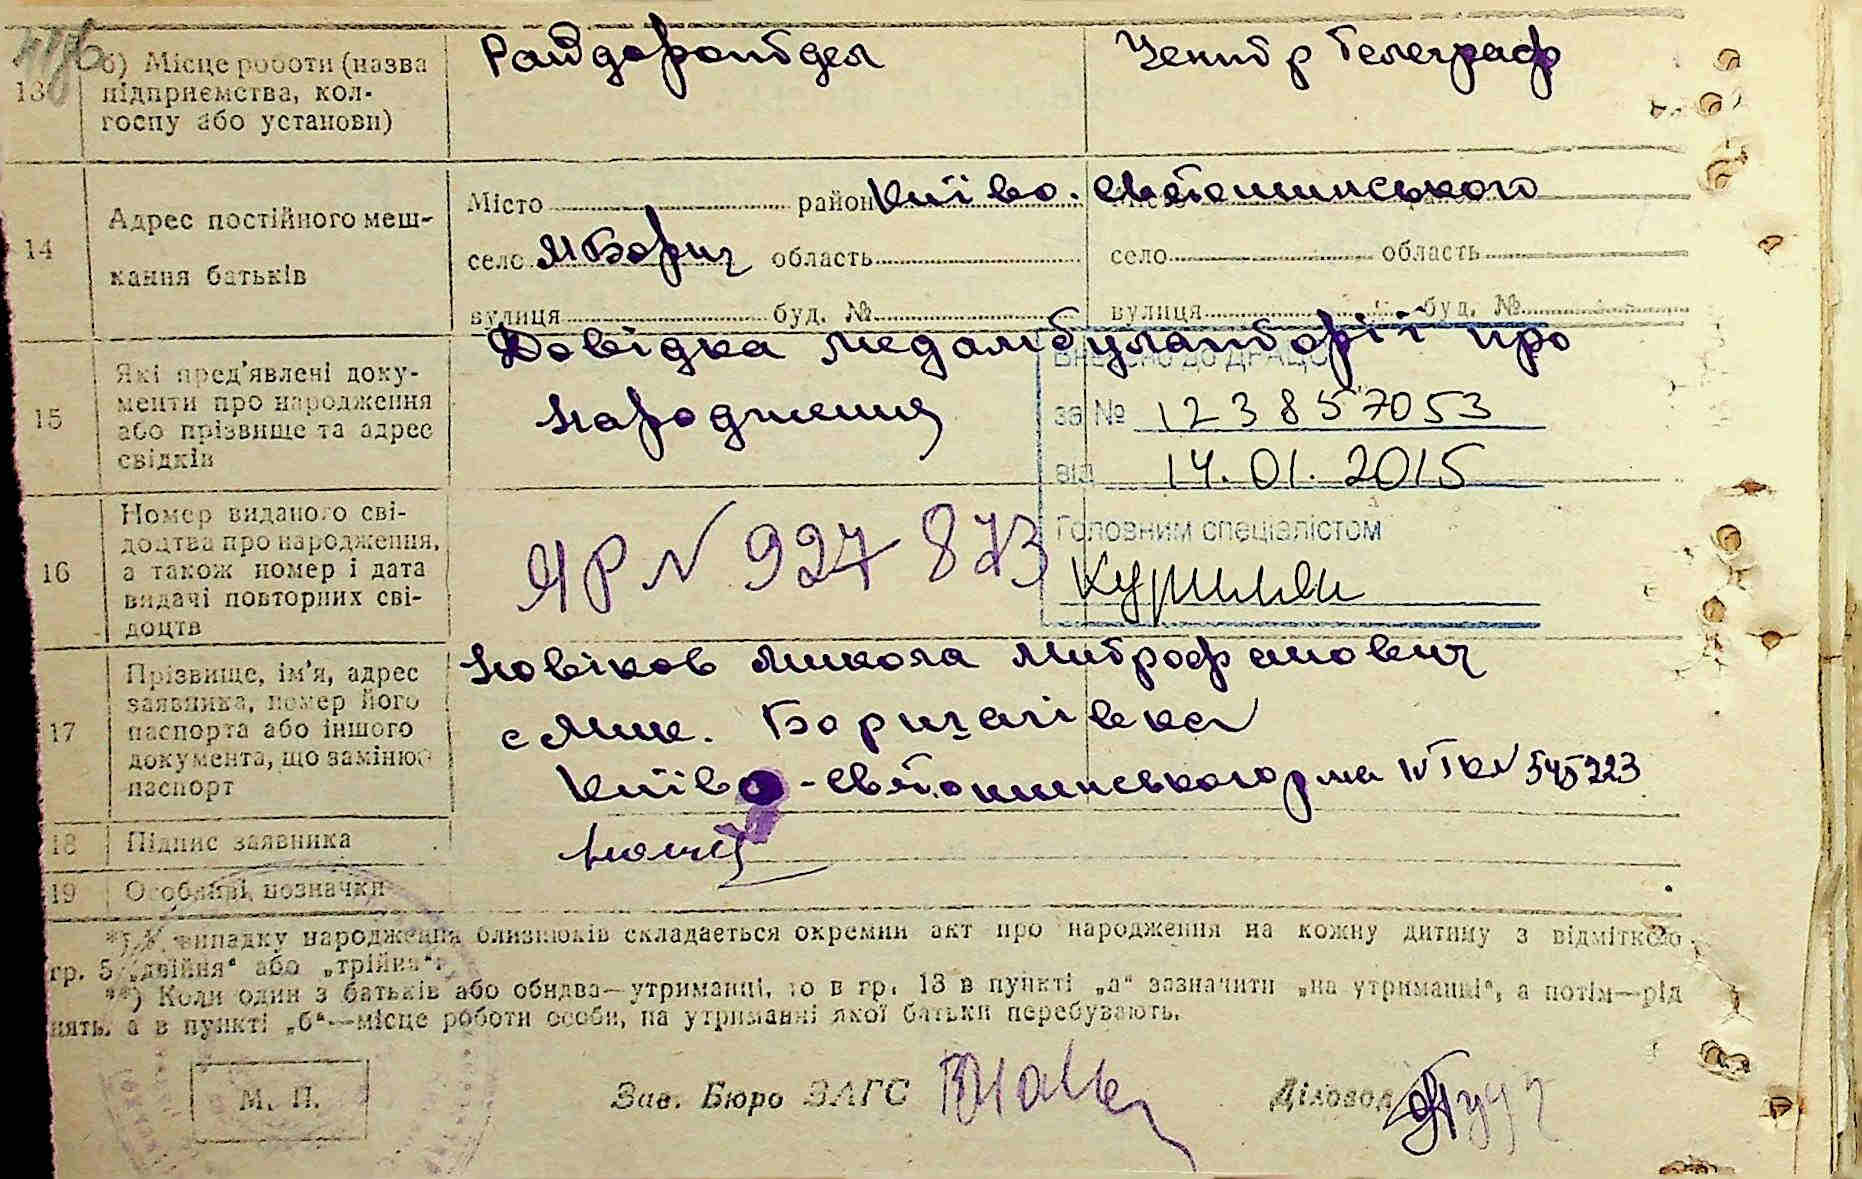 б) Місце роботи (назва
підприємства, кол-
госпу або установи)
13
Райдоротдел
Центр Телеграф
14
Адрес постійного меш-
кання батьків
Місто район Київо. Святошинського
село МБорщ область
село область
вулиця буд. №
вулиця буд. №
15
Які пред'явлені доку-
менти про народження
або прізвище та адрес
свідків
Довідка медамбулаторії про
народження
Внесено до ДРАЦС
за № 123857053
від 14.01.2015
Головним спеціалістом
16
Номер виданого сві-
доцтва про народження,
а також номер і дата
видачі повторних сві-
доцтв
ЯР № 927873
17
Прізвище, ім'я, адрес
заявника, номер його
паспорта або іншого
документа, що замінює
паспорт
Новіков Микола Митрофанович
с Мик. Борщагівка
Київо-Святошинського р на IV ТК № 545223
18
Підпис заявника
19
Особливі позначки
*) У випадку народження близнюків складається окремий акт про народження на кожну дитину з відміткою
гр. 5 „двійня“ або „трійня“.
**) Коли один з батьків або обидва—утриманці, то в гр. 13 в пункті „а“ зазначити „на утриманні“, а потім—рід
нять, а в пункті „б“—місце роботи особи, на утриманні якої батьки перебувають.
М. П.
Зав. Бюро ЗАГС
Діловод